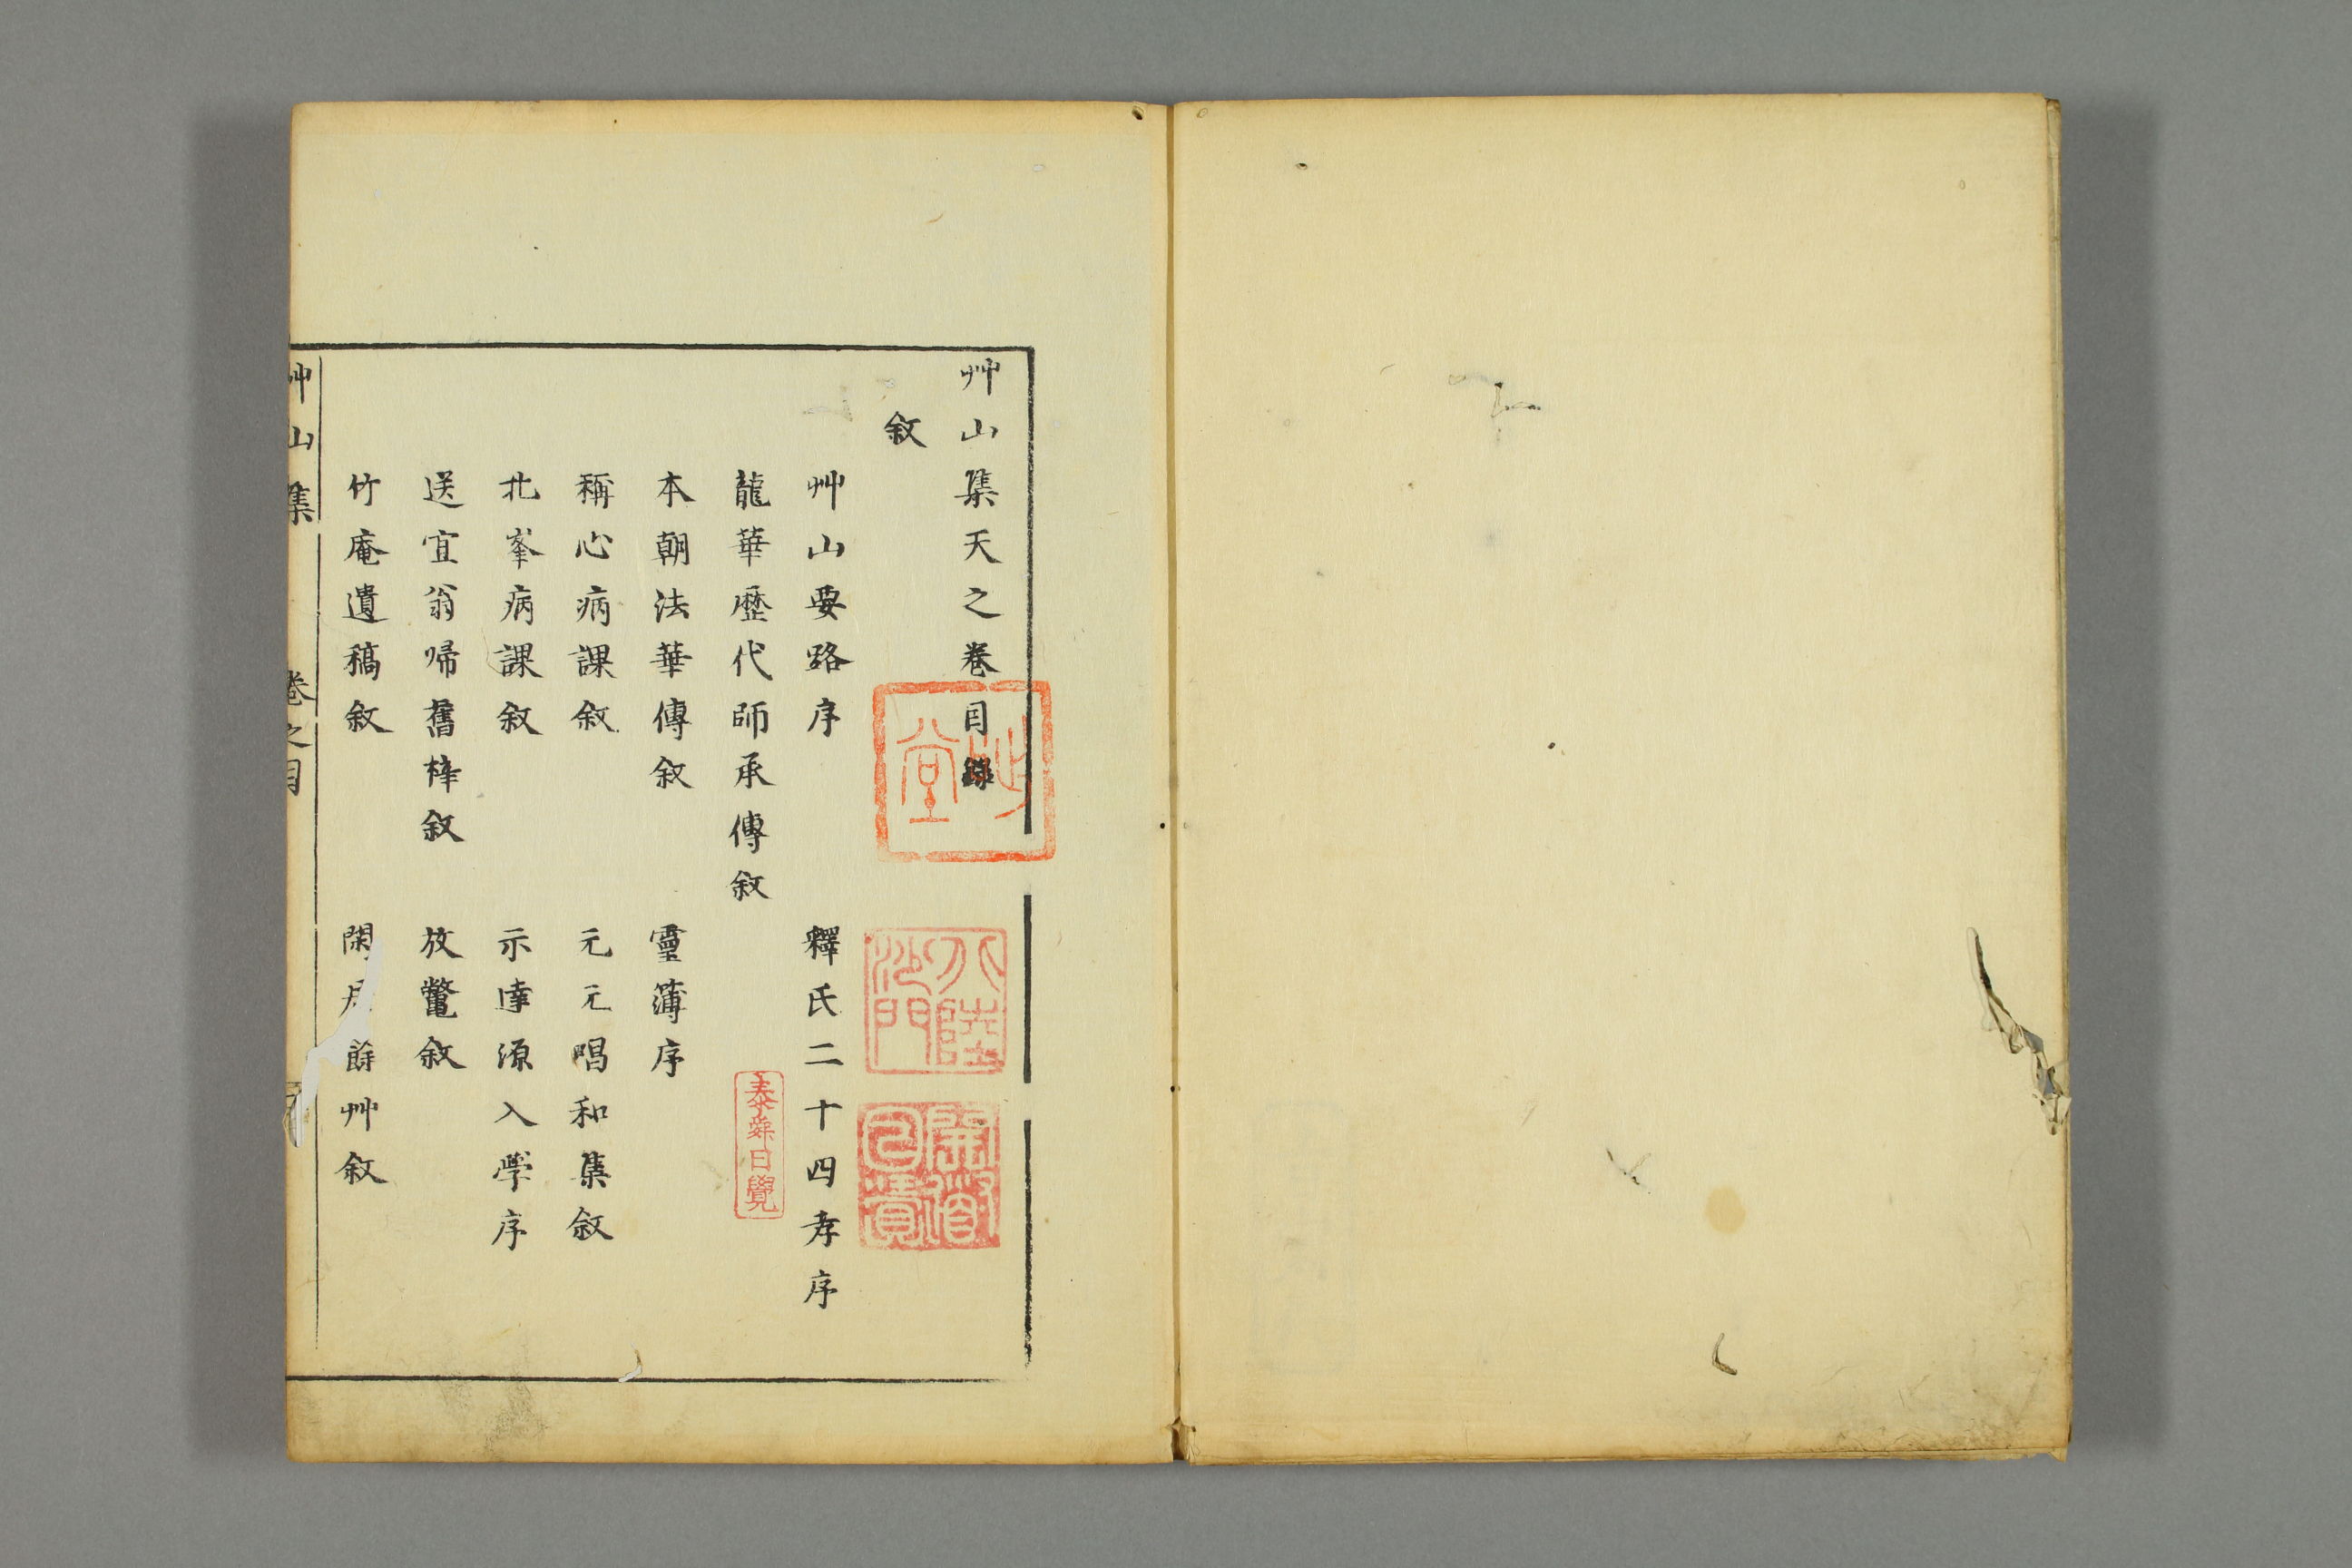 艸山集天之卷目錄
敘
艸山要路序
釋氏二十四孝序
龍華歷代師承傳敘
本朝法華傳敘
靈簿序
稱心病課敘
元元唱和集敘
北峯病課敘
示達源入學序
送宜翁帰舊梓敘
放鼈敘
竹庵遺稿敘
閑居餘艸敘
艸山集
卷之目
泰舜日覺
堂
八陸沙門